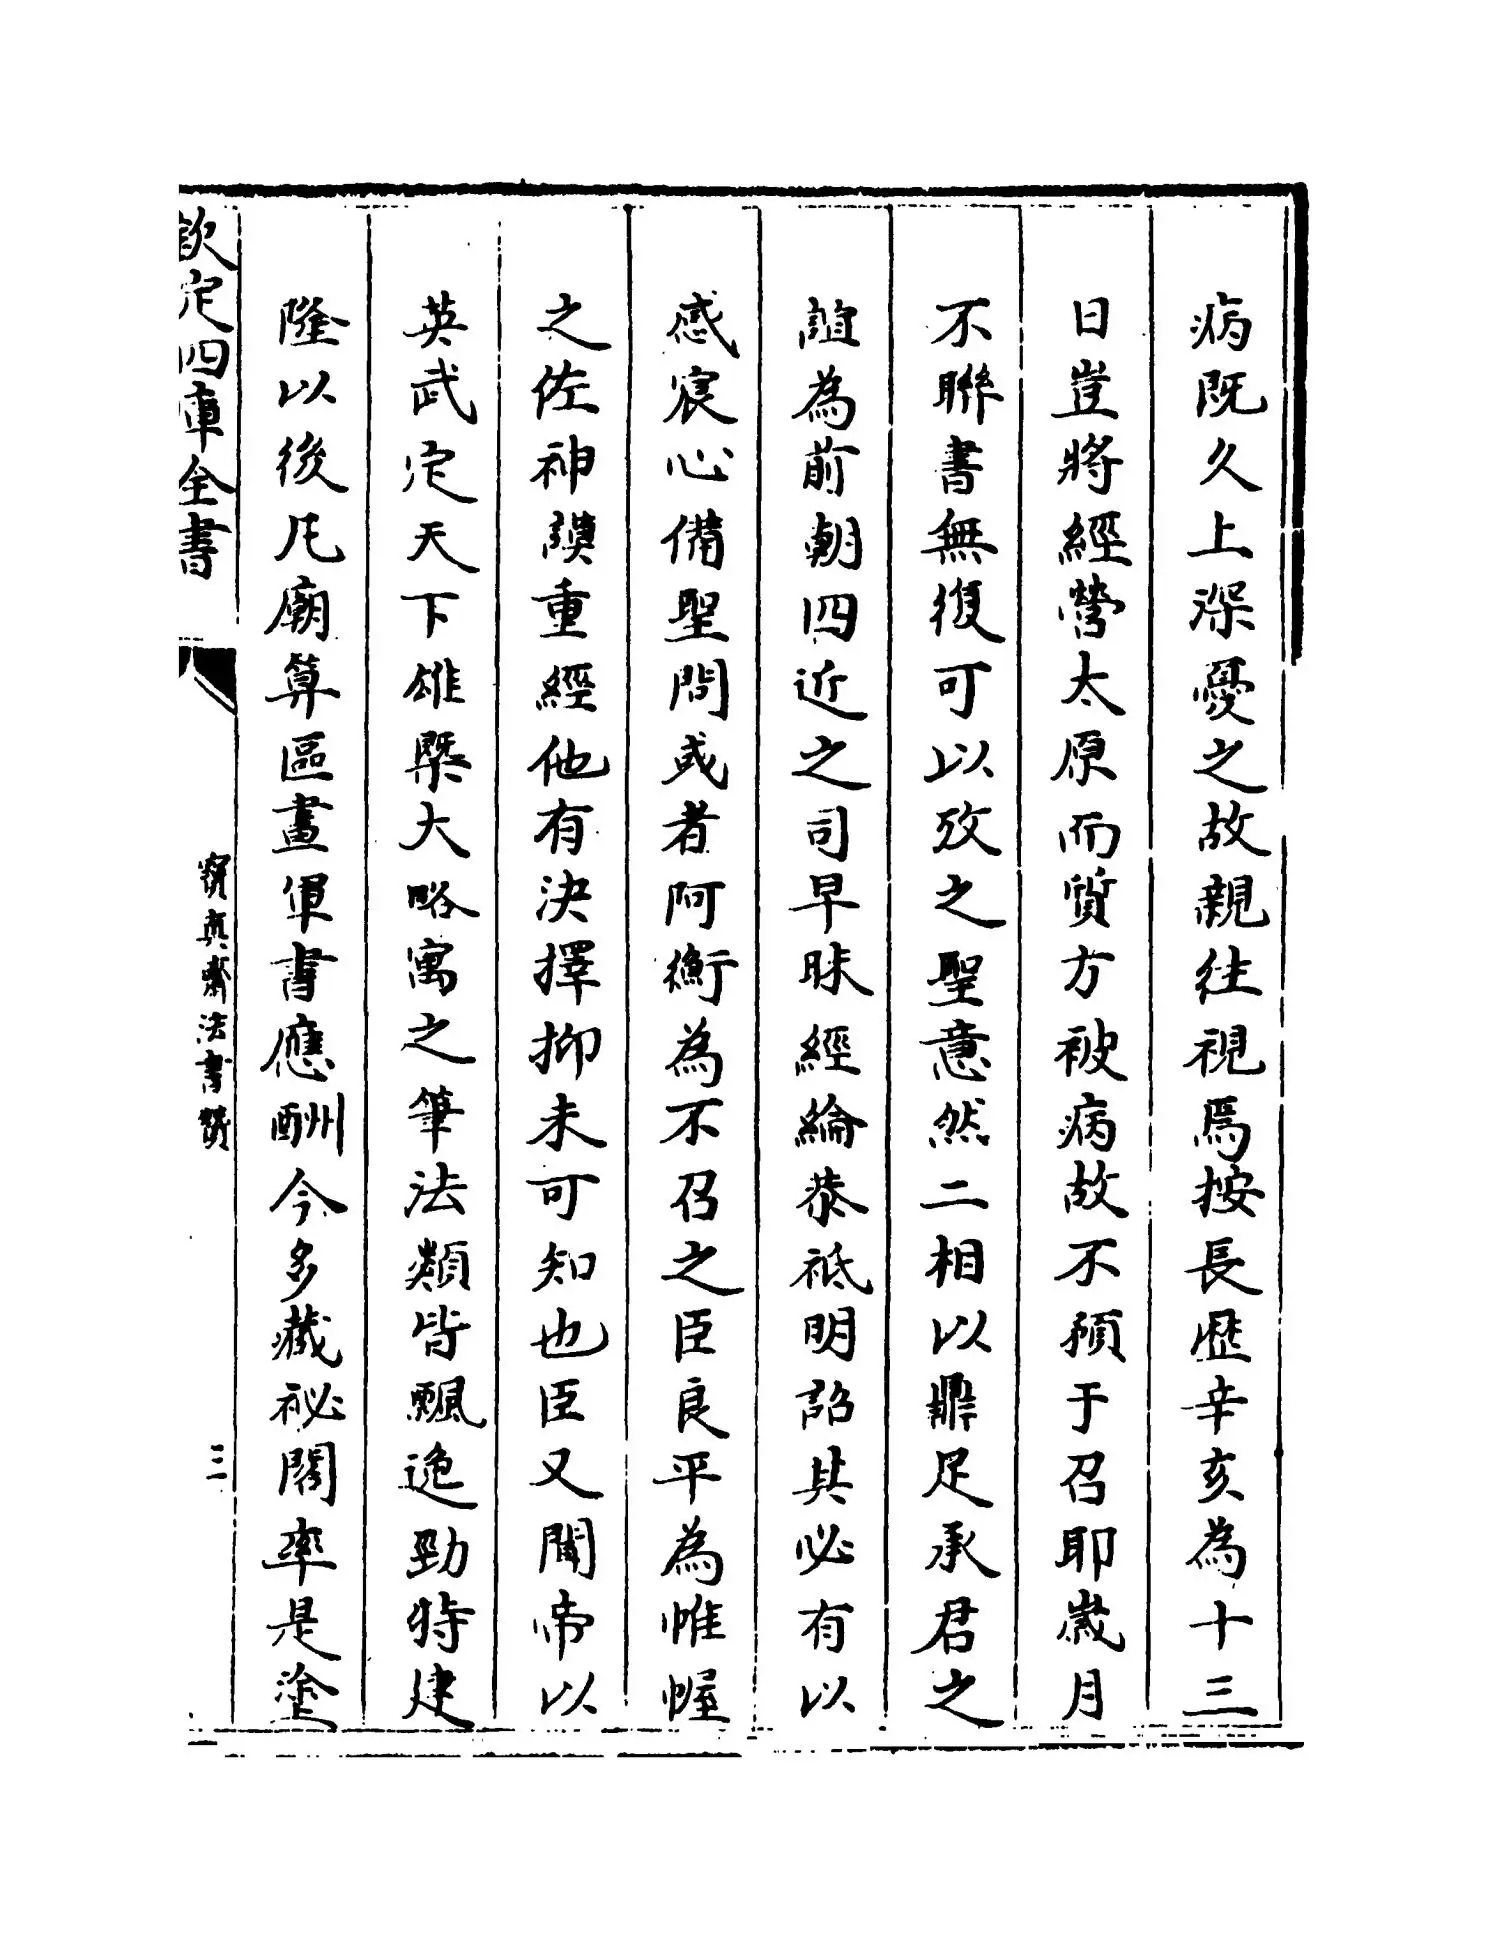 病既久上深憂之故親往視焉按長歴辛亥為十三
日豈將經營太原而質方被病故不預于召耶歲月
不聯書無復可以攷之聖意然二相以鼎足承君之
誼為前朝四近之司早昧經綸恭祗明詔其必有以
感宸心備聖問或者阿衡為不召之臣良平為帷幄
之佐神謨重經他有決擇抑未可知也臣又聞帝以
英武定天下雄槩大略寓之筆法類皆飄逸勁特建
隆以後凡廟算區畫軍書應酬今多藏祕閣率是塗
欽定四庫全書
寳真齋法書賛
三